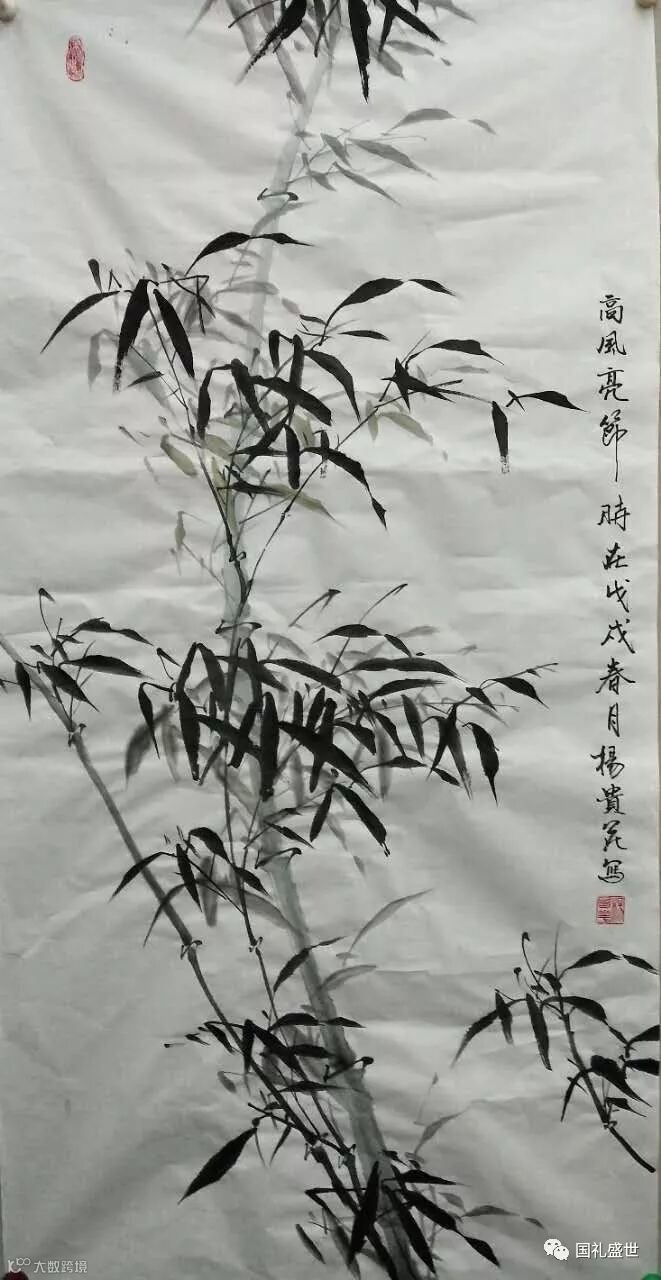 高風亮節 時在戊戌春月楊貴花寫
国礼盛世
大数跨境